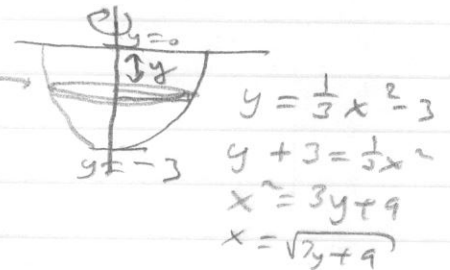 y=0
y
y=-3
y = 1/3 x² - 3
y + 3 = 1/3 x²
x² = 3y+9
x = √3y+9